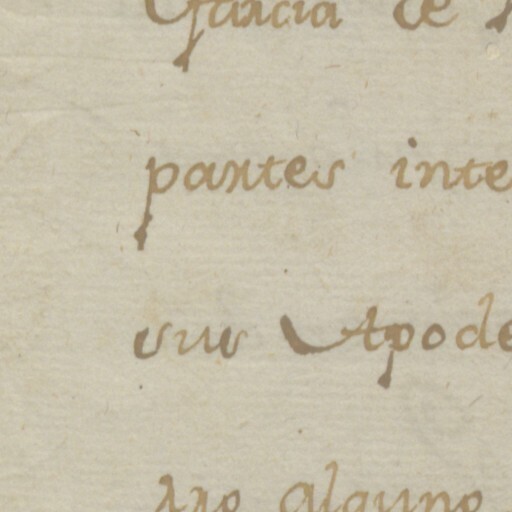 Garcia de
partes inte
sus Apode
alguno